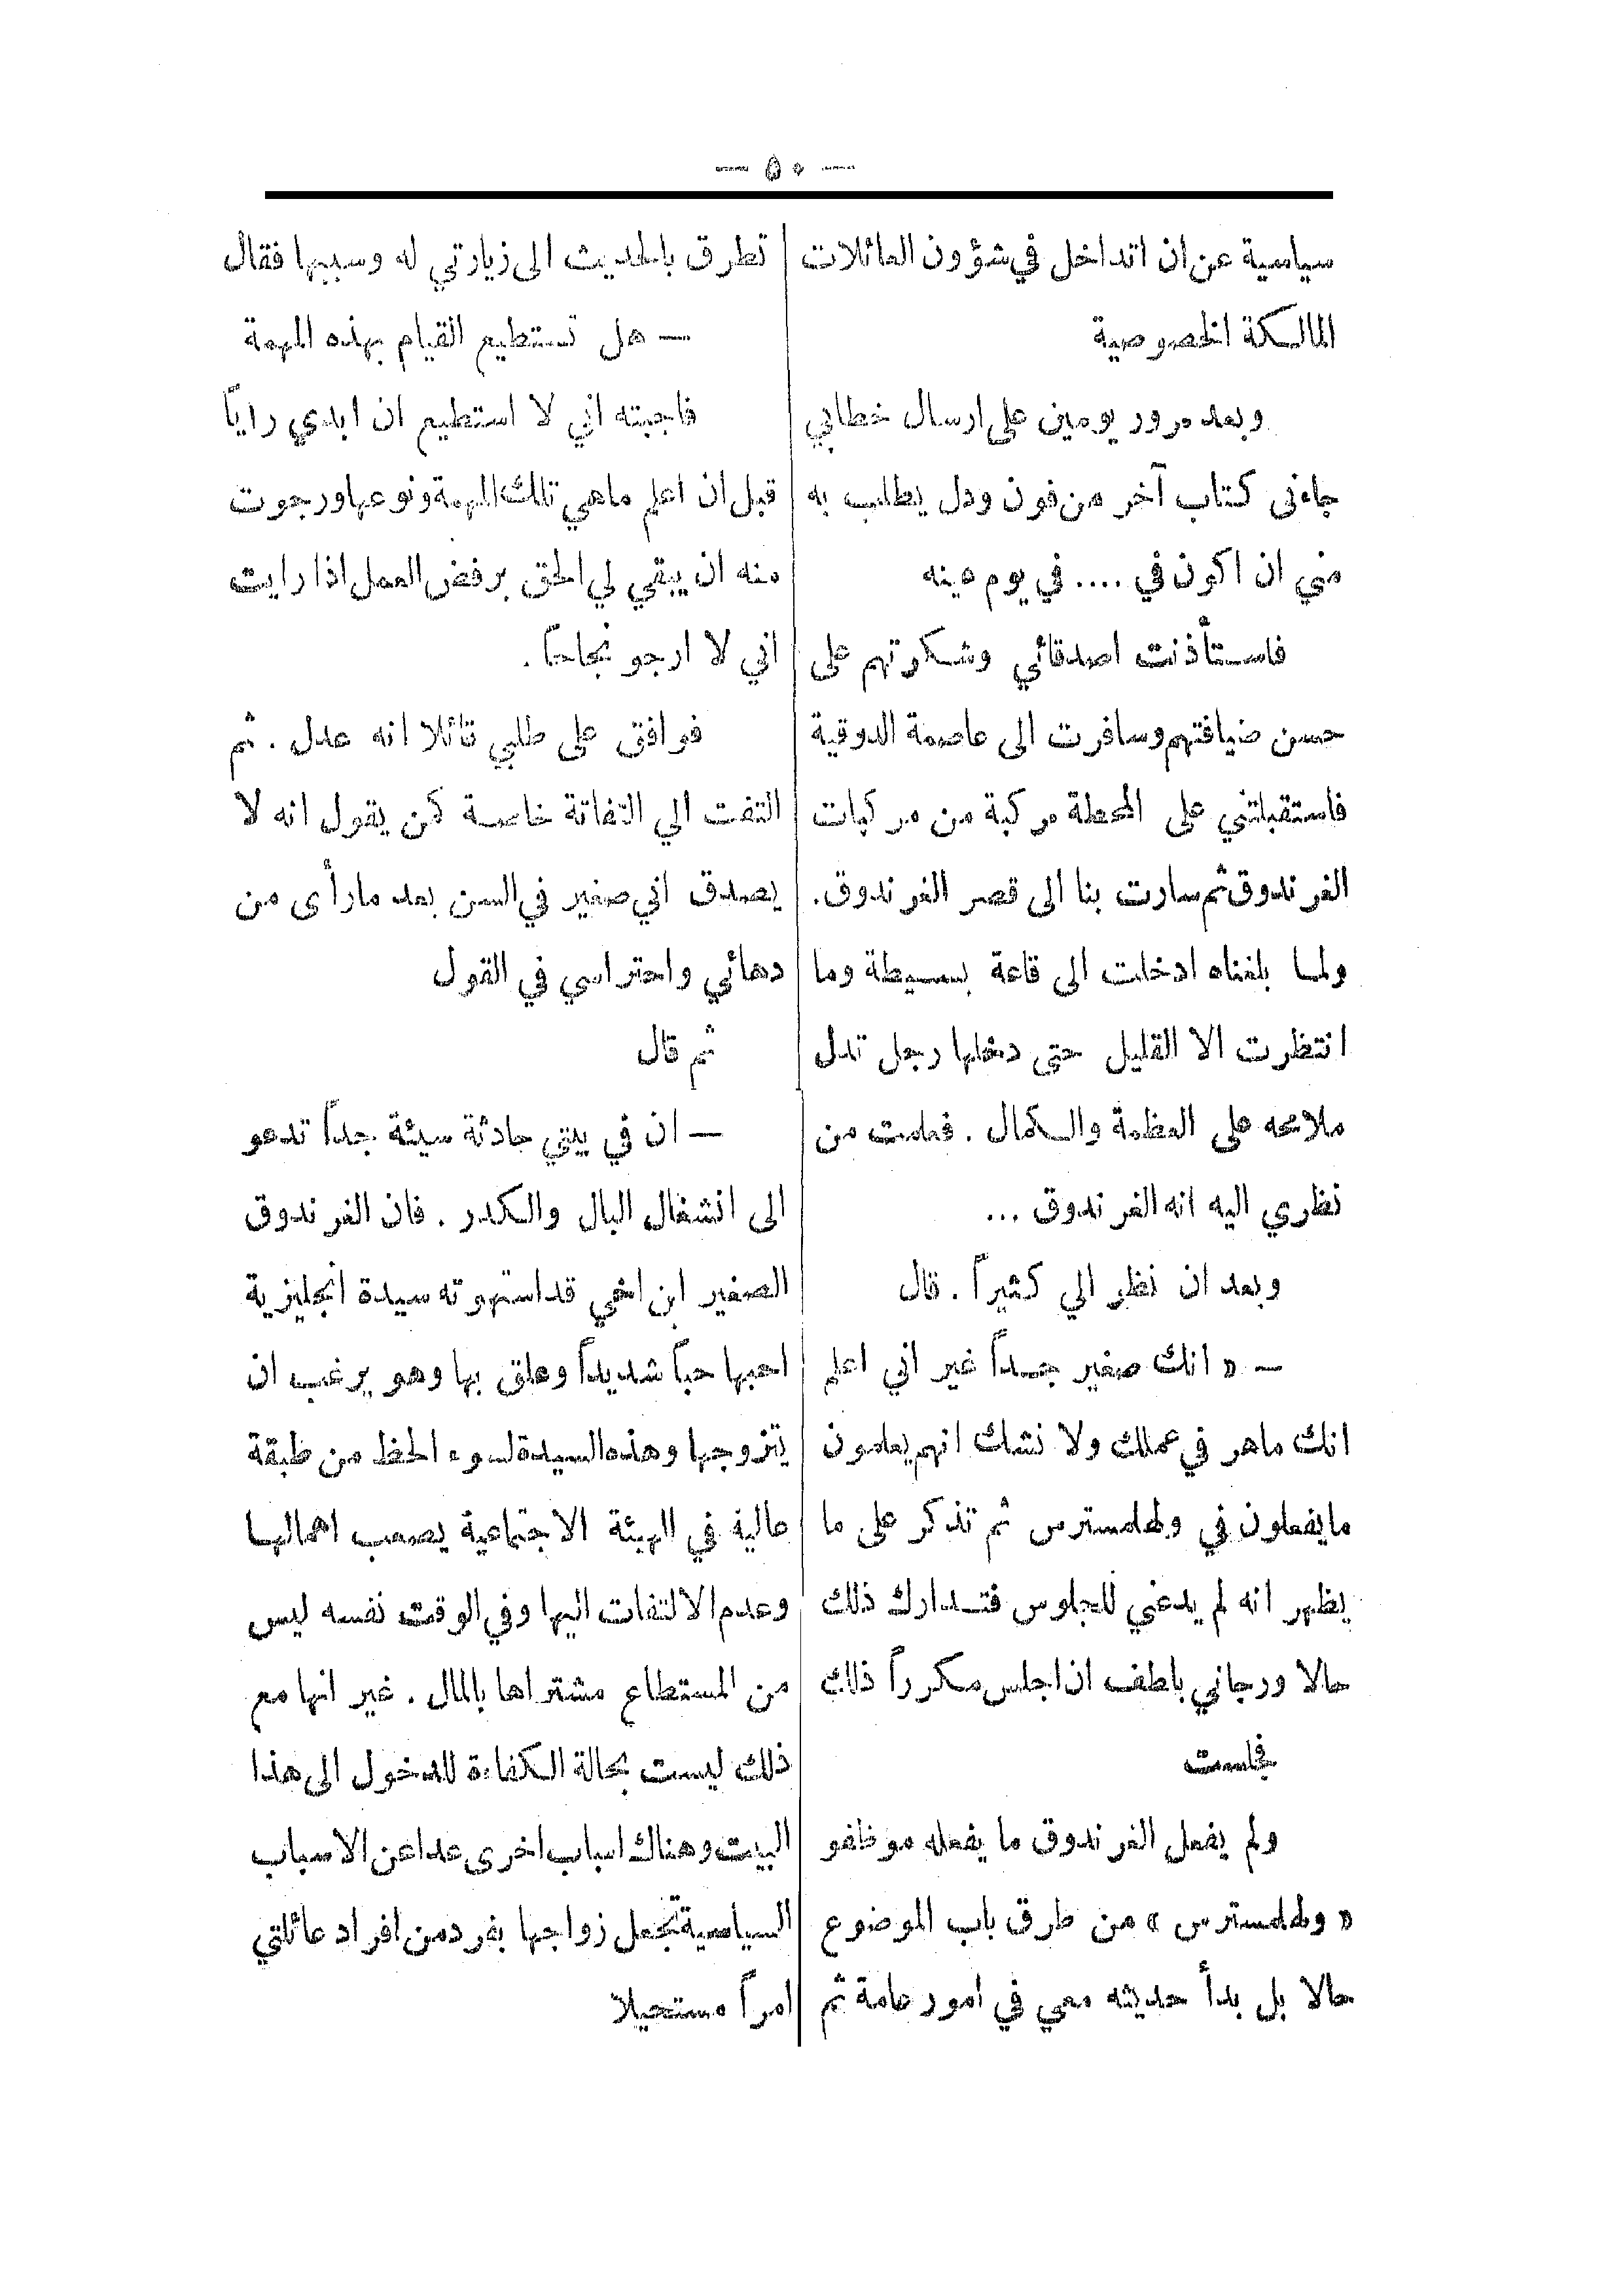 — ٥٠ —
سياسية عن ان اتداخل في شؤون العائلات
المالكة الخصوصية
وبعد مرور يومين على ارسال خطابي
جاءنى كتاب آخر من فون ودل يطلب به
مني ان اكون في .... في يوم عينه
فاستأذنت اصدقائي وشكرتهم على
حسن ضيافتهم وسافرت الى عاصمة الدوقية
فاستقبلتني على المحطة مركبة من مركبات
الغرندوق ثم سارت بنا الى قصر الغرندوق .
ولما بلغناه ادخلت الى قاعة بسيطة وما
انتظرت الا القليل حتى دخلها رجل تدل
ملامحه على العظمة والكمال . فعلمت من
نظري اليه انه الغرندوق ...
وبعد ان نظر الي كثيراً . قال
— « انك صغير جداً غير اني اعلم
انك ماهر في عملك ولا نشك انهم يعلمون
ما يفعلون في ولهلمسترس ثم تذكر على ما
يظهر انه لم يدعني للجلوس فتدارك ذلك
حالا ورجاني بلطف ان اجلس مكرراً ذلك
فجلست
ولم يفعل الغرندوق ما يفعله موظفو
« ولهلمسترس » من طرق باب الموضوع
حالا بل بدأ حديثه معي في امور عامة ثم
تطرق بالحديث الى زيارتي له وسببها فقال
— هل تستطيع القيام بهذه المهمة
فاجبته اني لا استطيع ان ابدي راياً
قبل ان اعلم ماهي تلك المهمة ونوعها ورجوت
منه ان يبقي لي الحق برفض العمل اذا رايت
اني لا ارجو نجاحاً .
فوافق على طلبي قائلا انه عدل . ثم
التفت الي التفاتة خاصة كمن يقول انه لا
يصدق اني صغير في السن بعد ما رأى من
دهائي واحتراسي في القول
ثم قال
— ان في بيتي حادثة سيئة جداً تدعو
الى انشغال البال والكدر . فان الغرندوق
الصغير ابن اخي قد استهوته سيدة انجليزية
احبها حباً شديداً وعلق بها وهو يرغب ان
يتزوجها وهذه السيدة لسوء الحظ من طبقة
عالية في الهيئة الاجتماعية يصعب اهمالها
وعدم الالتفات اليها وفي الوقت نفسه ليس
من المستطاع مشتراها بالمال . غير انها مع
ذلك ليست بحالة الكفاءة للدخول الى هذا
البيت وهناك اسباب اخرى عدا عن الاسباب
السياسية تجعل زواجها بفرد من افراد عائلتي
امراً مستحيلا